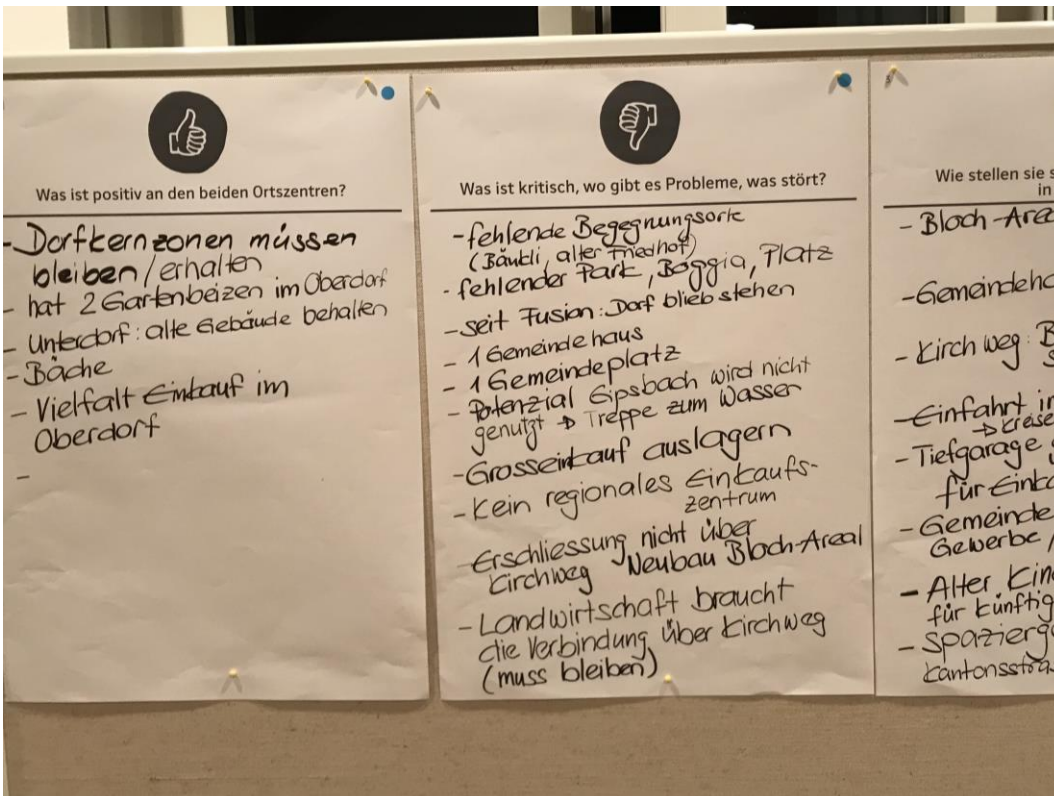 Was ist positiv an den beiden Ortszentren?
- Dorfkernzonen müssen
bleiben/erhalten
- hat 2 Gartenbeizen im Oberdorf
- Unterdorf: alte Gebäude behalten
- Bäche
- Vielfalt Einkauf im
Oberdorf
-
Was ist kritisch, wo gibt es Probleme, was stört?
- fehlende Begegnungsorte
(Bäukli, alter Friedhof)
- fehlender Park, Boggia, Platz
- seit Fusion: Dorf blieb stehen
- 1 Gemeindehaus
- 1 Gemeindeplatz
- Potenzial Gipsbach wird nicht
genutzt → Treppe zum Wasser
- Grosseinkauf auslagern
- Kein regionales Einkaufs-
zentrum
- Erschliessung nicht über
Kirchweg Neubau Bloch-Areal
- Landwirtschaft braucht
die Verbindung über Kirchweg
(muss bleiben)
Wie stellen sie s
in
- Bloch-Area
- Gemeindeha
- Kirchweg: B
- Einfahrt in
→ Kreise
- Tiefgarage g
für Einka
- Gemeinde
Gewerbe,
- Alter Kind
für künftig
- Spazierga
Kantonsstras